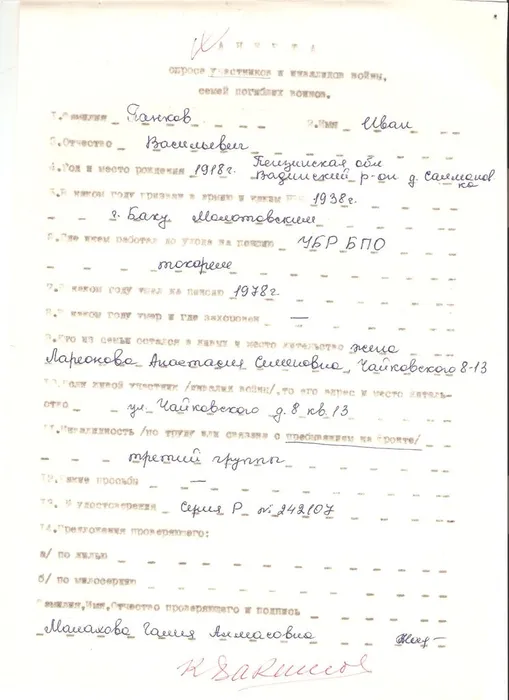 АНКЕТА
опроса участников и инвалидов войны,
семей погибших воинов.
1.Фамилия Панков 2.Имя Иван
3.Отчество Васильевич
4.Год и место рождения 1918г. Пензинская обл
Вадинский р-он д.
5.В каком году призван в армию и каким 1938г.
г. Баку Молотовским
6.Где кем работал до ухода на пенсию УБР БПО
токарем
7.В каком году ушел на пенсию 1978г.
8.В каком году умер и где захоронен —
9.Кто из семьи остался в живых и место жительство жена
Ларионова Анастасия Семеновна, Чайковского 8-13
10.Если живой участник /инвалид войны/, то его адрес и место житель-
ство ул. Чайковского д.8 кв.13
11.Инвалидность /по труду или связана с пребыванием на фронте/
третий группы
12.Какие просьбы —
13.№ удостоверения Серия Р № 242107
14.Предложения проверяющего:
а/ по жилью
б/ по милосердию
Фамилия,Имя,Отчество проверяющего и подпись
Малахова Галия Алмасовна